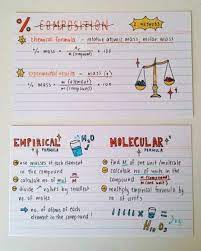 % COMPOSITION
2 METHODS
chemical formula - relative atomic mass, molar mass
% mass = Ar / m (compound) × 100
experimental results - mass (g)
% mass = m / m (compound) × 100
EMPIRICAL
FORMULA
H₂O
use masses of each element
in the compound
calculate no. of mol
divide values by smallest
no. of moles
→ no. of atoms of each
element in the compound!
MOLECULAR
FORMULA
find M of per unit/molecule
calculate no. of
multiply empirical formula by
no. of units
H₂O